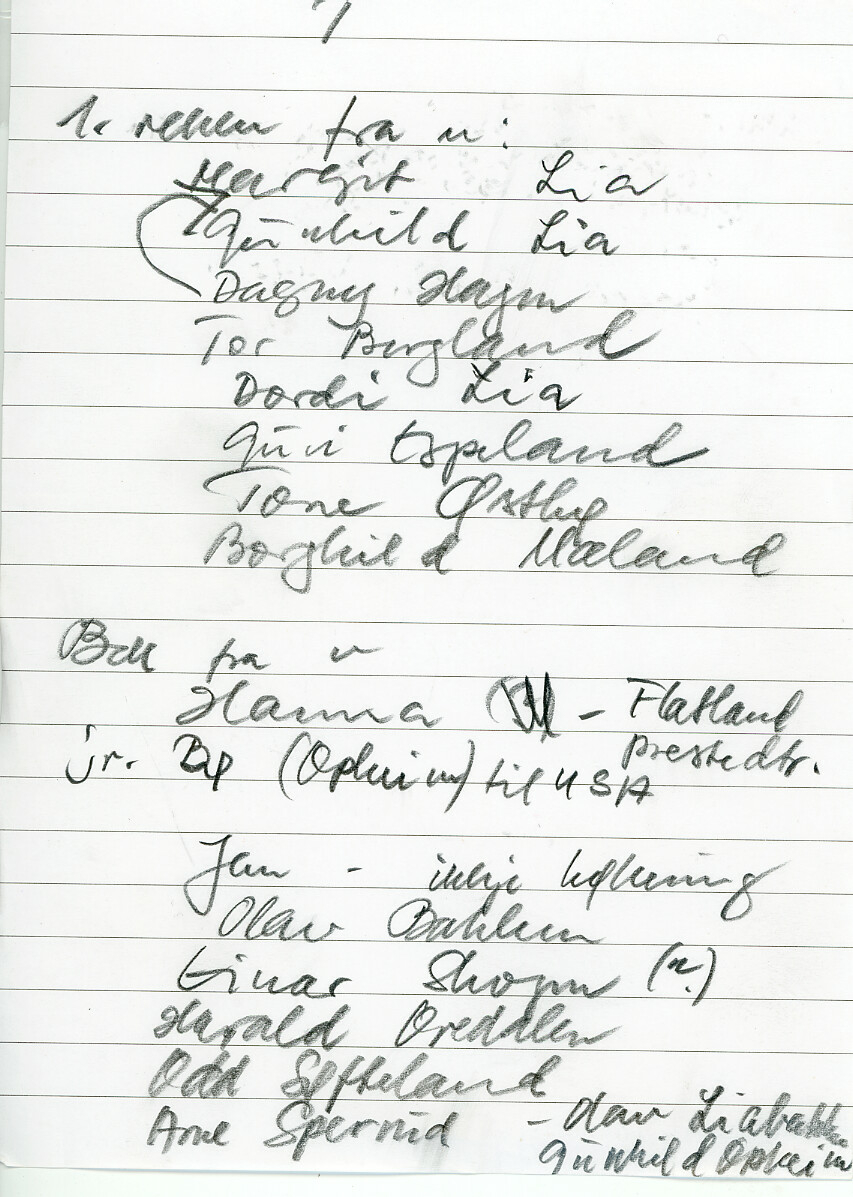 1. rekken fra v:
Margit Lia
Gunhild Lia
Dagny Hagen
Tor Bergland
Dordi Lia
Guri Espeland
Tone Østhg
Borghild Mæland
Bak fra v
Hanna - Flatland
prestedtr.
jr. (Opheim) til USA
Jan - ikkje
Olav Bakken
Einar Skogen (n.)
Harald Breddalen
Odd Softeland
Arne Spernid - Olav Liabakk
Gunhild Opheim